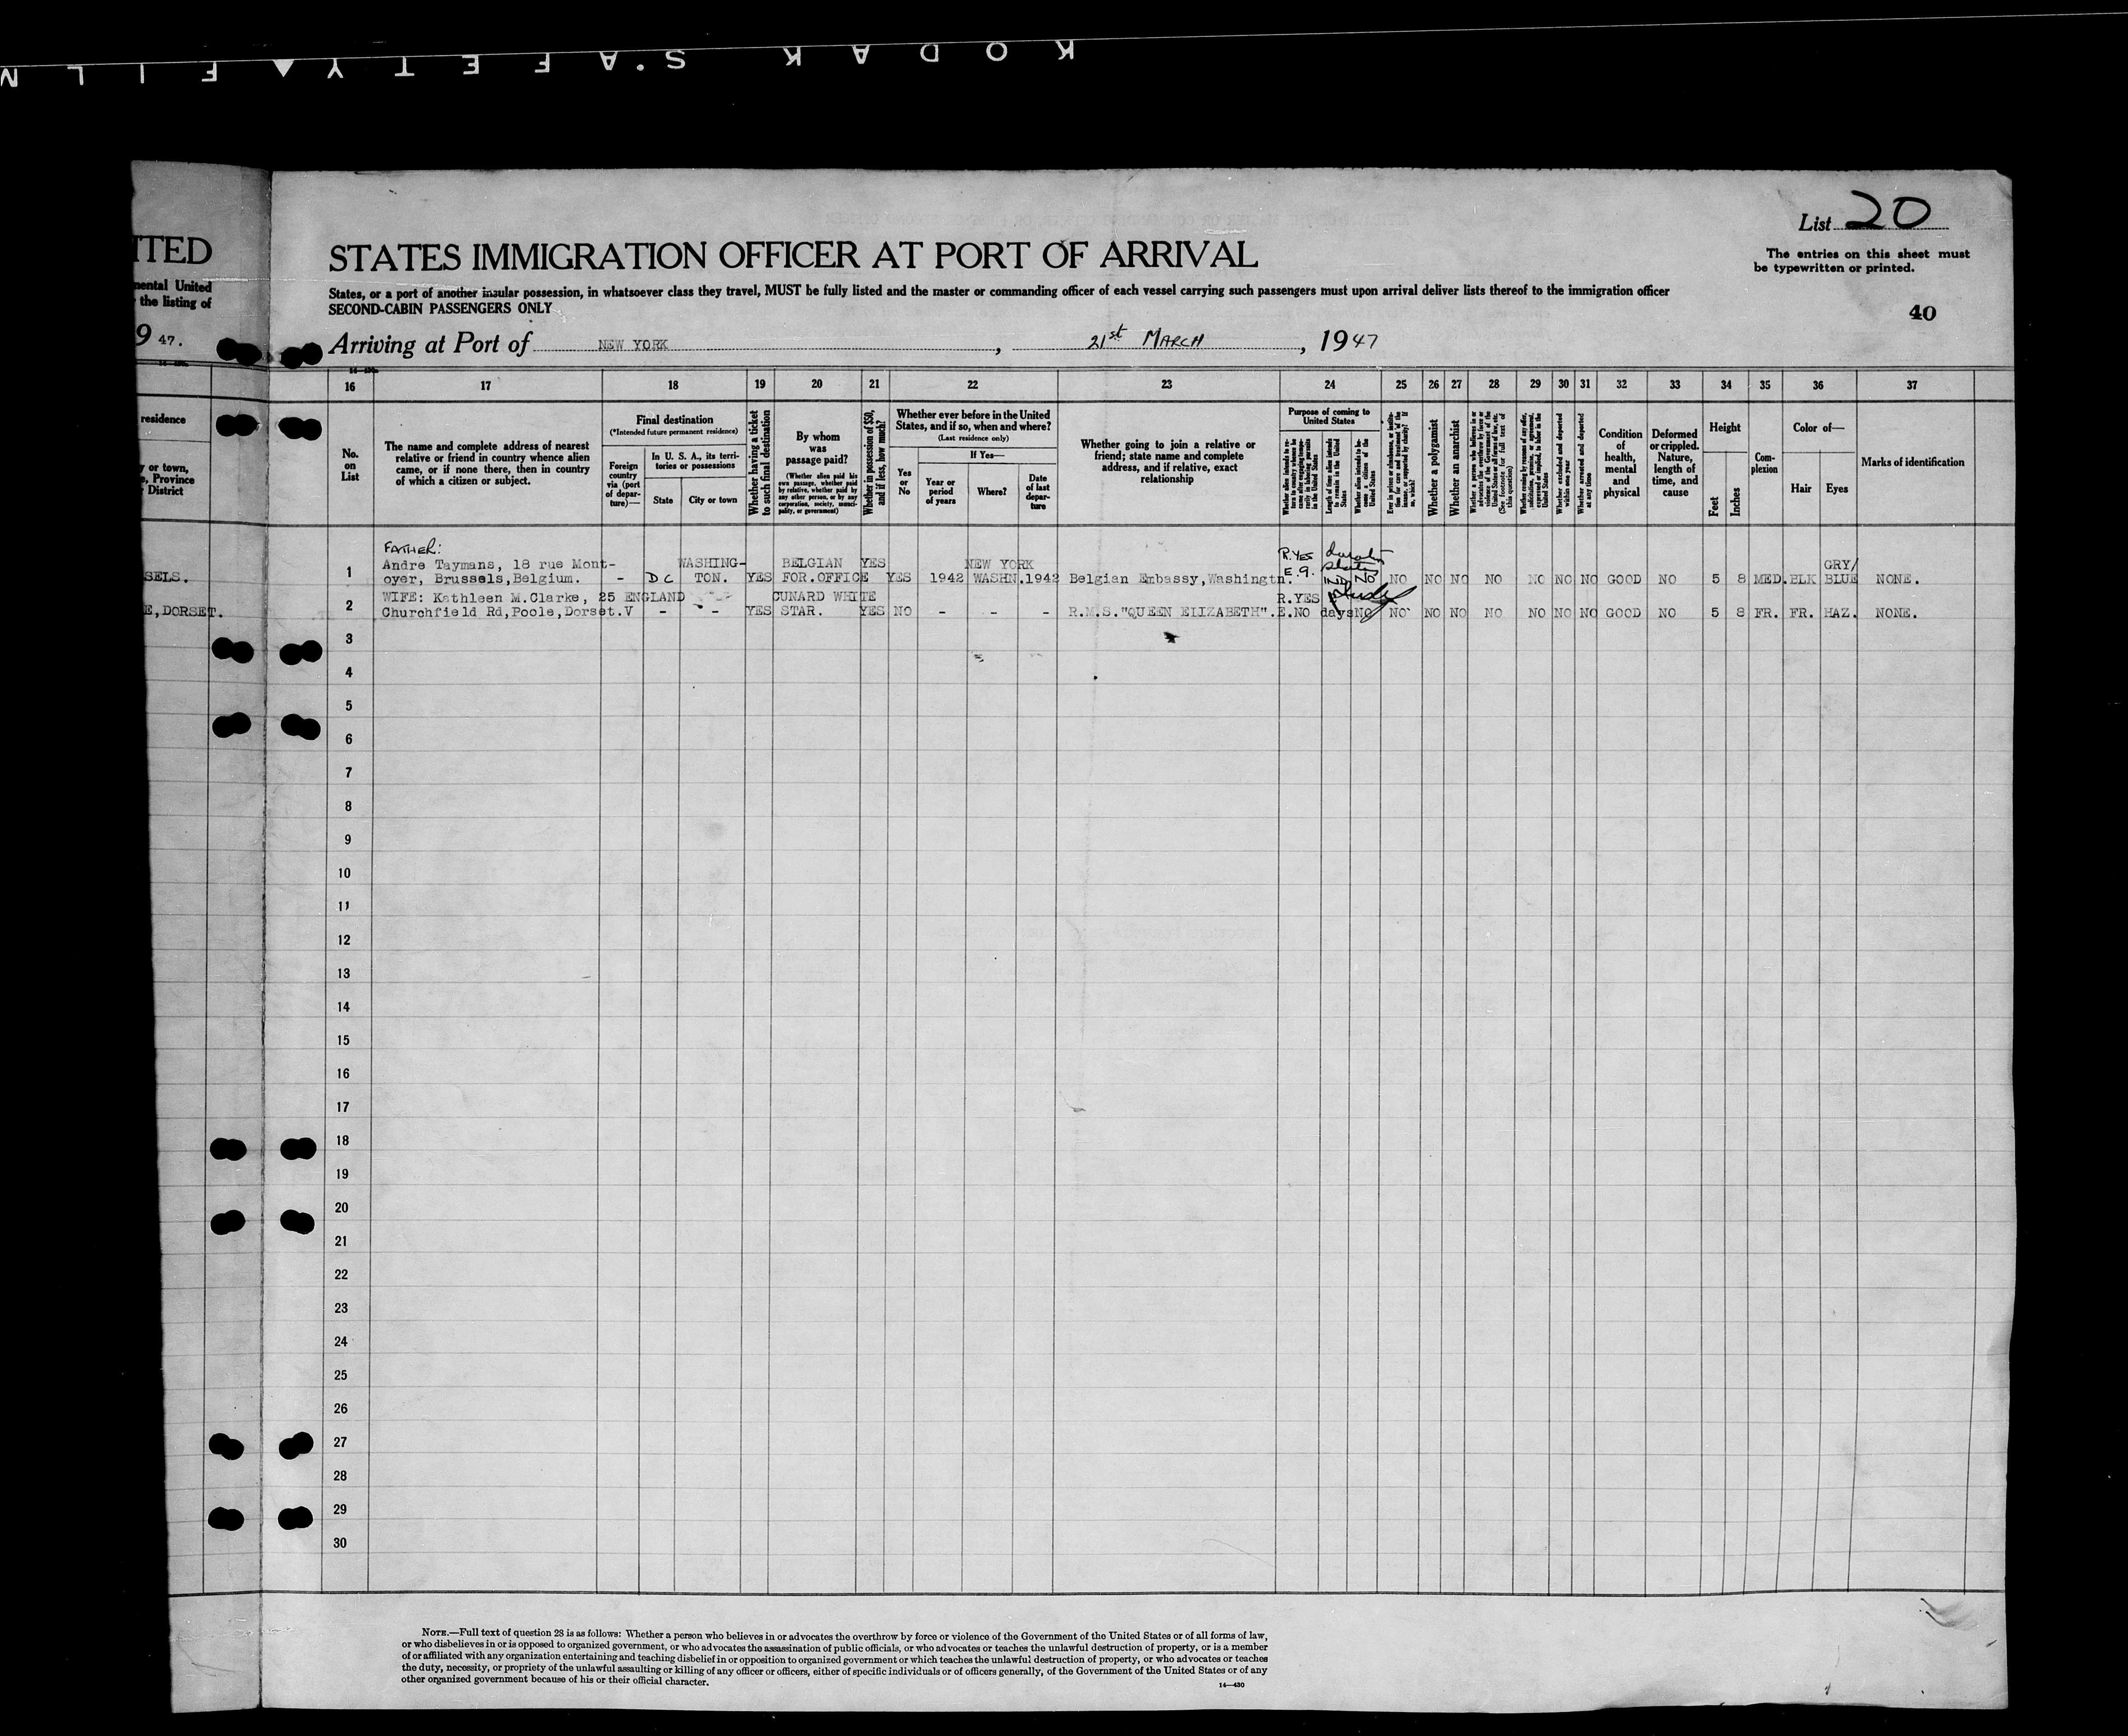 KODAK S.A.FETY FILM
List 20
The entries on this sheet must
be typewritten or printed.
40
ITED
STATES IMMIGRATION OFFICER AT PORT OF ARRIVAL
mental United
the listing of
States, or a port of another insular possession, in whatsoever class they travel, MUST be fully listed and the master or commanding officer of each vessel carrying such passengers must upon arrival deliver lists thereof to the immigration officer
SECOND-CABIN PASSENGERS ONLY
9 47.
Arriving at Port of NEW YORK, 21st MARCH, 1947
16 17 18 19 20 21 22 23 24 25 26 27 28 29 30 31 32 33 34 35 36 37
residence
y or town,
e, Province
District
No.
on
List
The name and complete address of nearest
relative or friend in country whence alien
came, or if none there, then in country
of which a citizen or subject.
Final destination
(*Intended future permanent residence)
Foreign
country
via (port
of depar-
ture)—
In U. S. A., its terri-
tories or possessions
State
City or town
Whether having a ticket
to such final destination
By whom
was
passage paid?
(Whether alien paid his
own passage, whether paid
by relative, whether paid by
any other person, or by any
corporation, society, munici-
pality, or government)
Whether in possession of $50,
and if less, how much?
Whether ever before in the United
States, and if so, when and where?
(Last residence only)
Yes
or
No
If Yes—
Year or
period
of years
Where?
Date
of last
depar-
ture
Whether going to join a relative or
friend; state name and complete
address, and if relative, exact
relationship
Purpose of coming to
United States
Length of time alien intends
to remain in the United
States
Whether alien intends to be-
come a citizen of the
United States
Whether a polygamist
Whether an anarchist
(See footnote for full text of
this question)
Whether excluded and deported
within one year
Whether arrested and deported
at any time
Condition
of
health,
mental
and
physical
Deformed
or crippled.
Nature,
length of
time, and
cause
Height
Feet
Inches
Com-
plexion
Color of—
Hair
Eyes
Marks of identification
FATHER:
SELS.
1
Andre Taymans, 18 rue Mont-
oyer, Brussels,Belgium.
- D C
WASHING-
TON.
YES
BELGIAN
FOR.OFFICE
YES
YES 1942
NEW YORK
WASHN.1942
Belgian Embassy,Washingtn.
R.YES
E.9.
IND NO
NO NO NO NO NO NO NO GOOD NO 5 8 MED. BLK
GRY/
BLUE
NONE.
E,DORSET.
2
WIFE: Kathleen M.Clarke, 25
Churchfield Rd,Poole,Dorset.V
ENGLAND
- -
YES
CUNARD WHITE
STAR.
YES NO - - -
R.M.S."QUEEN ELIZABETH".
R.YES
E.NO
days
NO
NO NO NO NO NO NO NO GOOD NO 5 8 FR. FR. HAZ. NONE.
3
4
5
6
7
8
9
10
11
12
13
14
15
16
17
18
19
20
21
22
23
24
25
26
27
28
29
30
NOTE.—Full text of question 28 is as follows: Whether a person who believes in or advocates the overthrow by force or violence of the Government of the United States or of all forms of law,
or who disbelieves in or is opposed to organized government, or who advocates the assassination of public officials, or who advocates or teaches the unlawful destruction of property, or is a member
of or affiliated with any organization entertaining and teaching disbelief in or opposition to organized government or which teaches the unlawful destruction of property, or who advocates or teaches
the duty, necessity, or propriety of the unlawful assaulting or killing of any officer or officers, either of specific individuals or of officers generally, of the Government of the United States or of any
other organized government because of his or their official character.
14—430